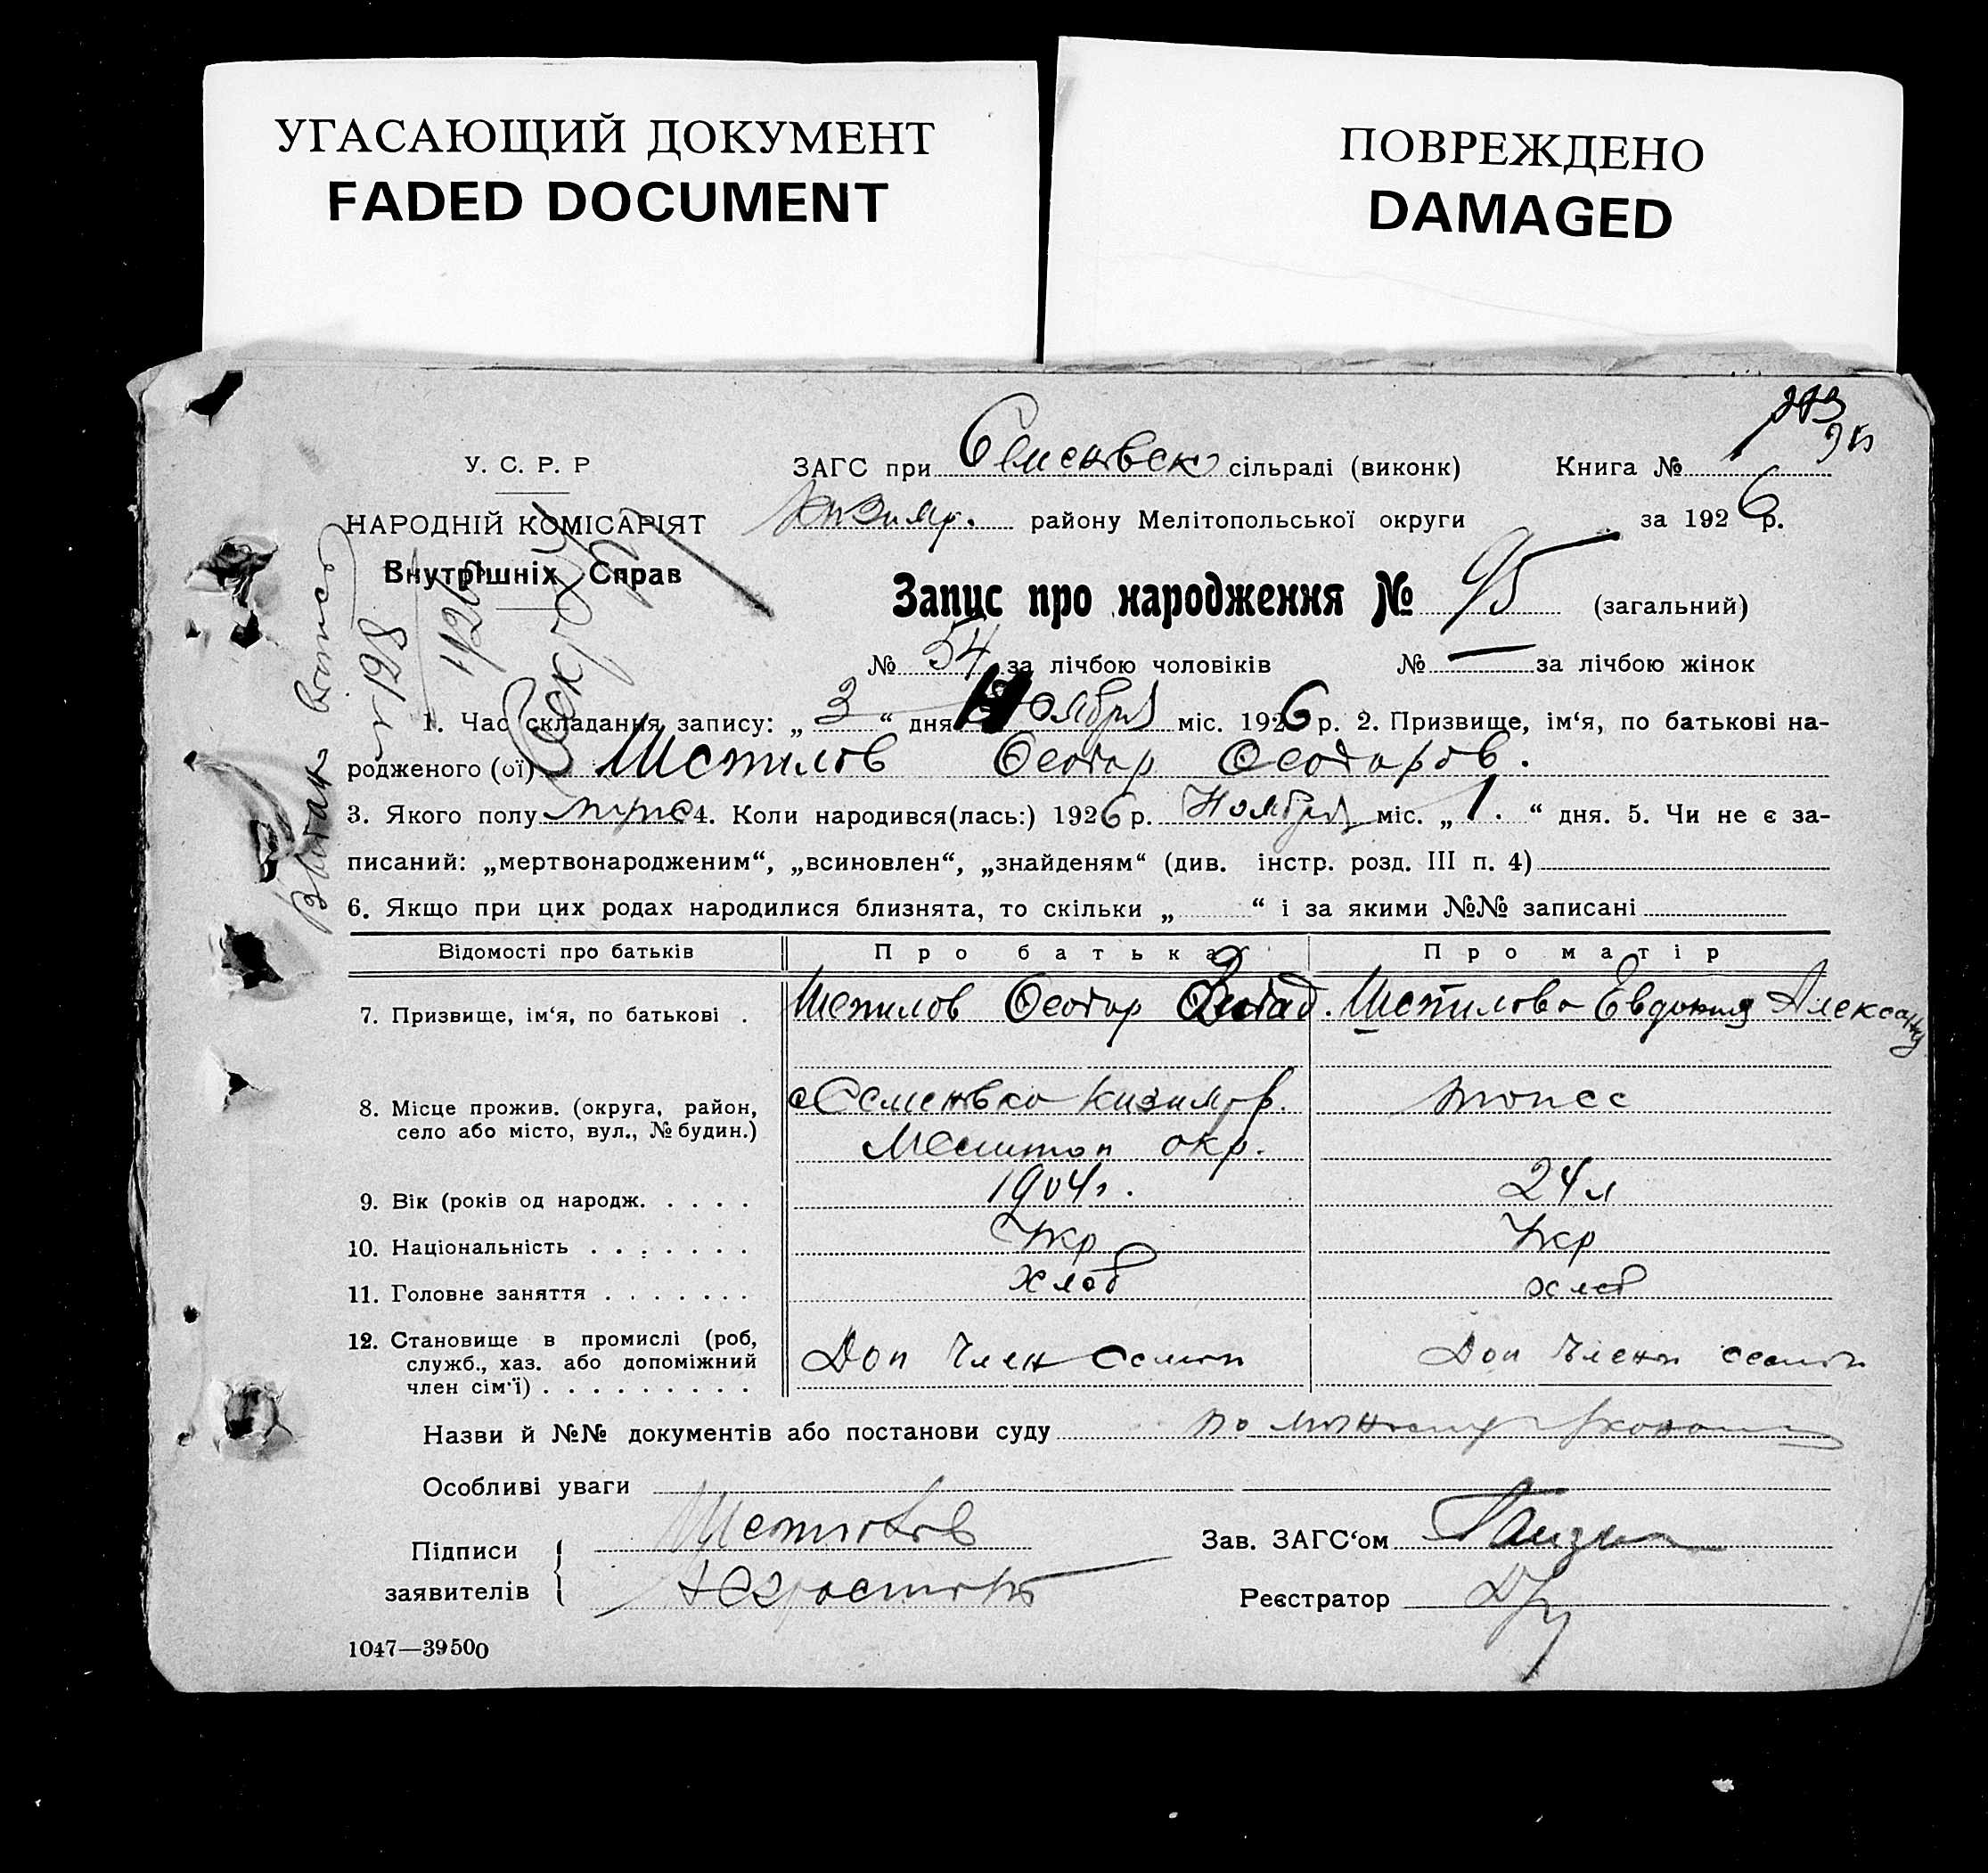 УГАСАЮЩИЙ ДОКУМЕНТ
FADED DOCUMENT
ПОВРЕЖДЕНО
DAMAGED
У. С. Р. Р
НАРОДНІЙ КОМІСАРІЯТ
Внутрішніх Справ
ЗАГС при Семеновск сільраді (виконк) Книга №
района Мелітопольської округи за 1926 р.
Запис про народження № 95 (загальний)
№ 54 за лічбою чоловіків № — за лічбою жінок
1. Час складання запису: „ 3 “ дня Ноября міс. 1926 р. 2. Призвище, ім‘я, по батькові на-
родженого (ої) Шепилов Феодор Феодоров.
3. Якого полу муж 4. Коли народився(лась:) 1926 р. Ноября міс. „ 1. “ дня. 5. Чи не є за-
писаний: „мертвонародженим“, „всиновлен“, „знайденям“ (див. інстр. розд. III п. 4)
6. Якщо при цих родах народилися близнята, то скільки „ “ і за якими №№ записані
Відомості про батьків Про батька Про матір
7. Призвище, ім‘я, по батькові . Шепилов Феодор Шепилова Евдокия Александ
8. Місце прожив. (округа, район,
село або місто, вул., № будин.)
с Семеновка Кизияр. тоже
Мелитоп окр.
9. Вік (років од народж. . . . . 1904г. 24 л
10. Національність . . . . . . . Укр Укр
11. Головне заняття . . . . . . . хлеб хлеб
12. Становище в промислі (роб,
служб., хаз. або допоміжний
член сім‘ї) . . . . . . . . .
Доп член семьи Доп член семьи
Назви й №№ документів або постанови суду
Особливі уваги
Підписи
заявителів
Шепилов
Зав. ЗАГС‘ом
Реєстратор
1047—39500